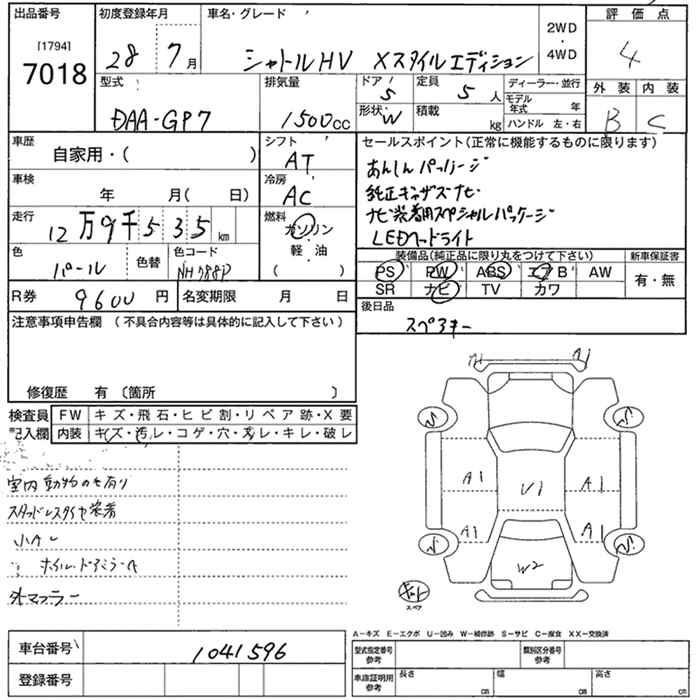 出品番号 初度登録年月 車名・グレード 2WD・4WD 評価点
[1794]
7018 28 7月 シャトルHV Xスタイルエディション 4
型式 排気量 ドア 5 定員 5人 ディーラー・並行 外装 内装
DAA-GP7 1500cc 形状 W 積載 kg モデル年式 年 B C
ハンドル 左・右
車歴 シフト セールスポイント(正常に機能するものに限ります)
自家用・( ) AT あんしんパッケージ
車検 冷房 純正ギャザズナビ
年 月( 日) AC ナビ装着用スペシャルパッケージ
走行 燃料 LEDヘッドライト
12万9千535km ガソリン
色 色替 色コード 軽油 装備品(純正品に限り丸をつけて下さい) 新車保証書
パール NH788P ( ) PS PW ABS エアB AW 有・無
SR ナビ TV カワ
R券 9600円 名変期限 月 日 後日品
スペアキー
注意事項申告欄(不具合内容等は具体的に記入して下さい)
修復歴 有〔箇所 〕
検査員 FW キズ・飛石・ヒビ割・リペア跡・X要
記入欄 内装 キズ・汚レ・コゲ・穴・スレ・キレ・破レ
A1 A1
A1 U1 A1
A1 A1
W2
室内動物のも有り
スタッドレスタイヤ装着
小A
ホイル・ドアミラーA
スペア
A−キズ E−エクボ U−凹み W−補修跡 S−サビ C−腐食 XX−交換済
車台番号 1041596 型式指定番号 参考 類別区分番号 参考
登録番号 車庫証明用 参考 長さ cm 幅 cm 高さ cm